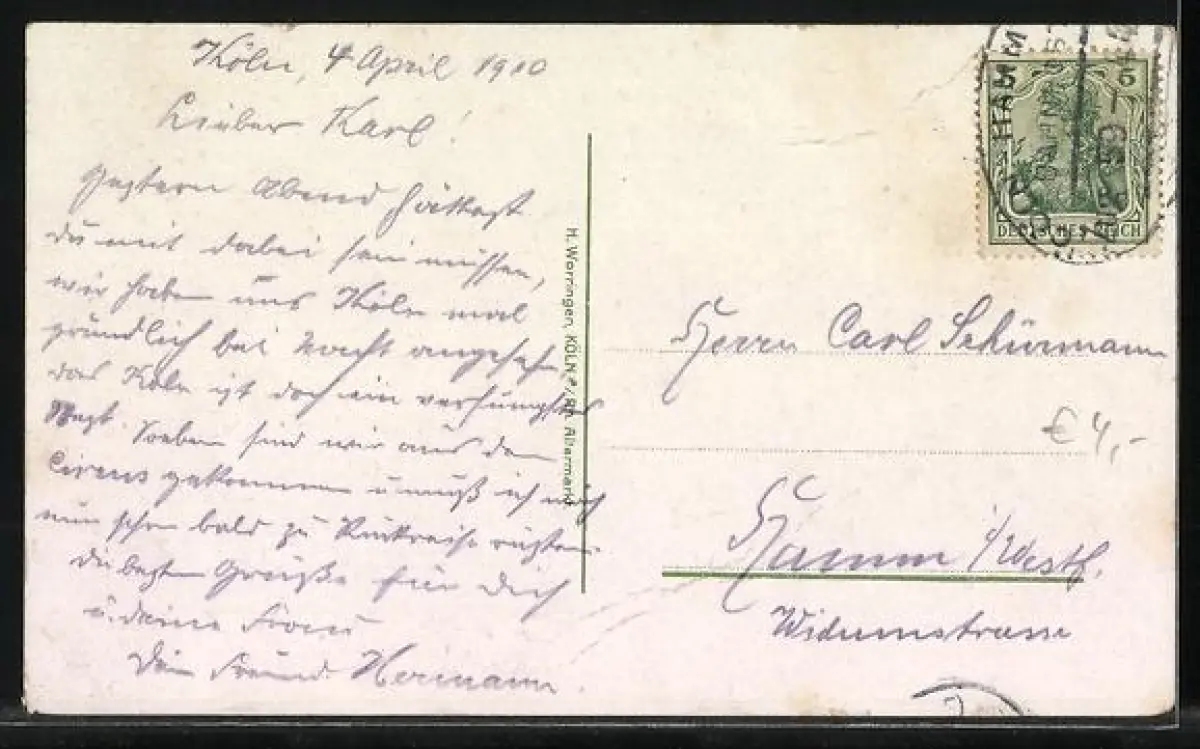 Köln, 4 April 1910
Lieber Karl!
Gestern Abend hättest
du mit dabei sein müssen,
wir haben uns Köln mal
gründlich bei Nacht angesehen,
das Köln ist doch ein
Nest. Soeben sind wir aus dem
Circus gekommen u muß ich mich
nun schon bald zu Rückreise rüsten.
Die besten Grüße für Dich
u. deine Frau
Dein Freund Hermann.
H. Worringen, KÖLN a./Rh. Altermarkt
5 5
DEUTSCHES REICH
HAMM
Herrn Carl Schürmann
€ 4,-
Hamm i/Westf.
Widumstrasse